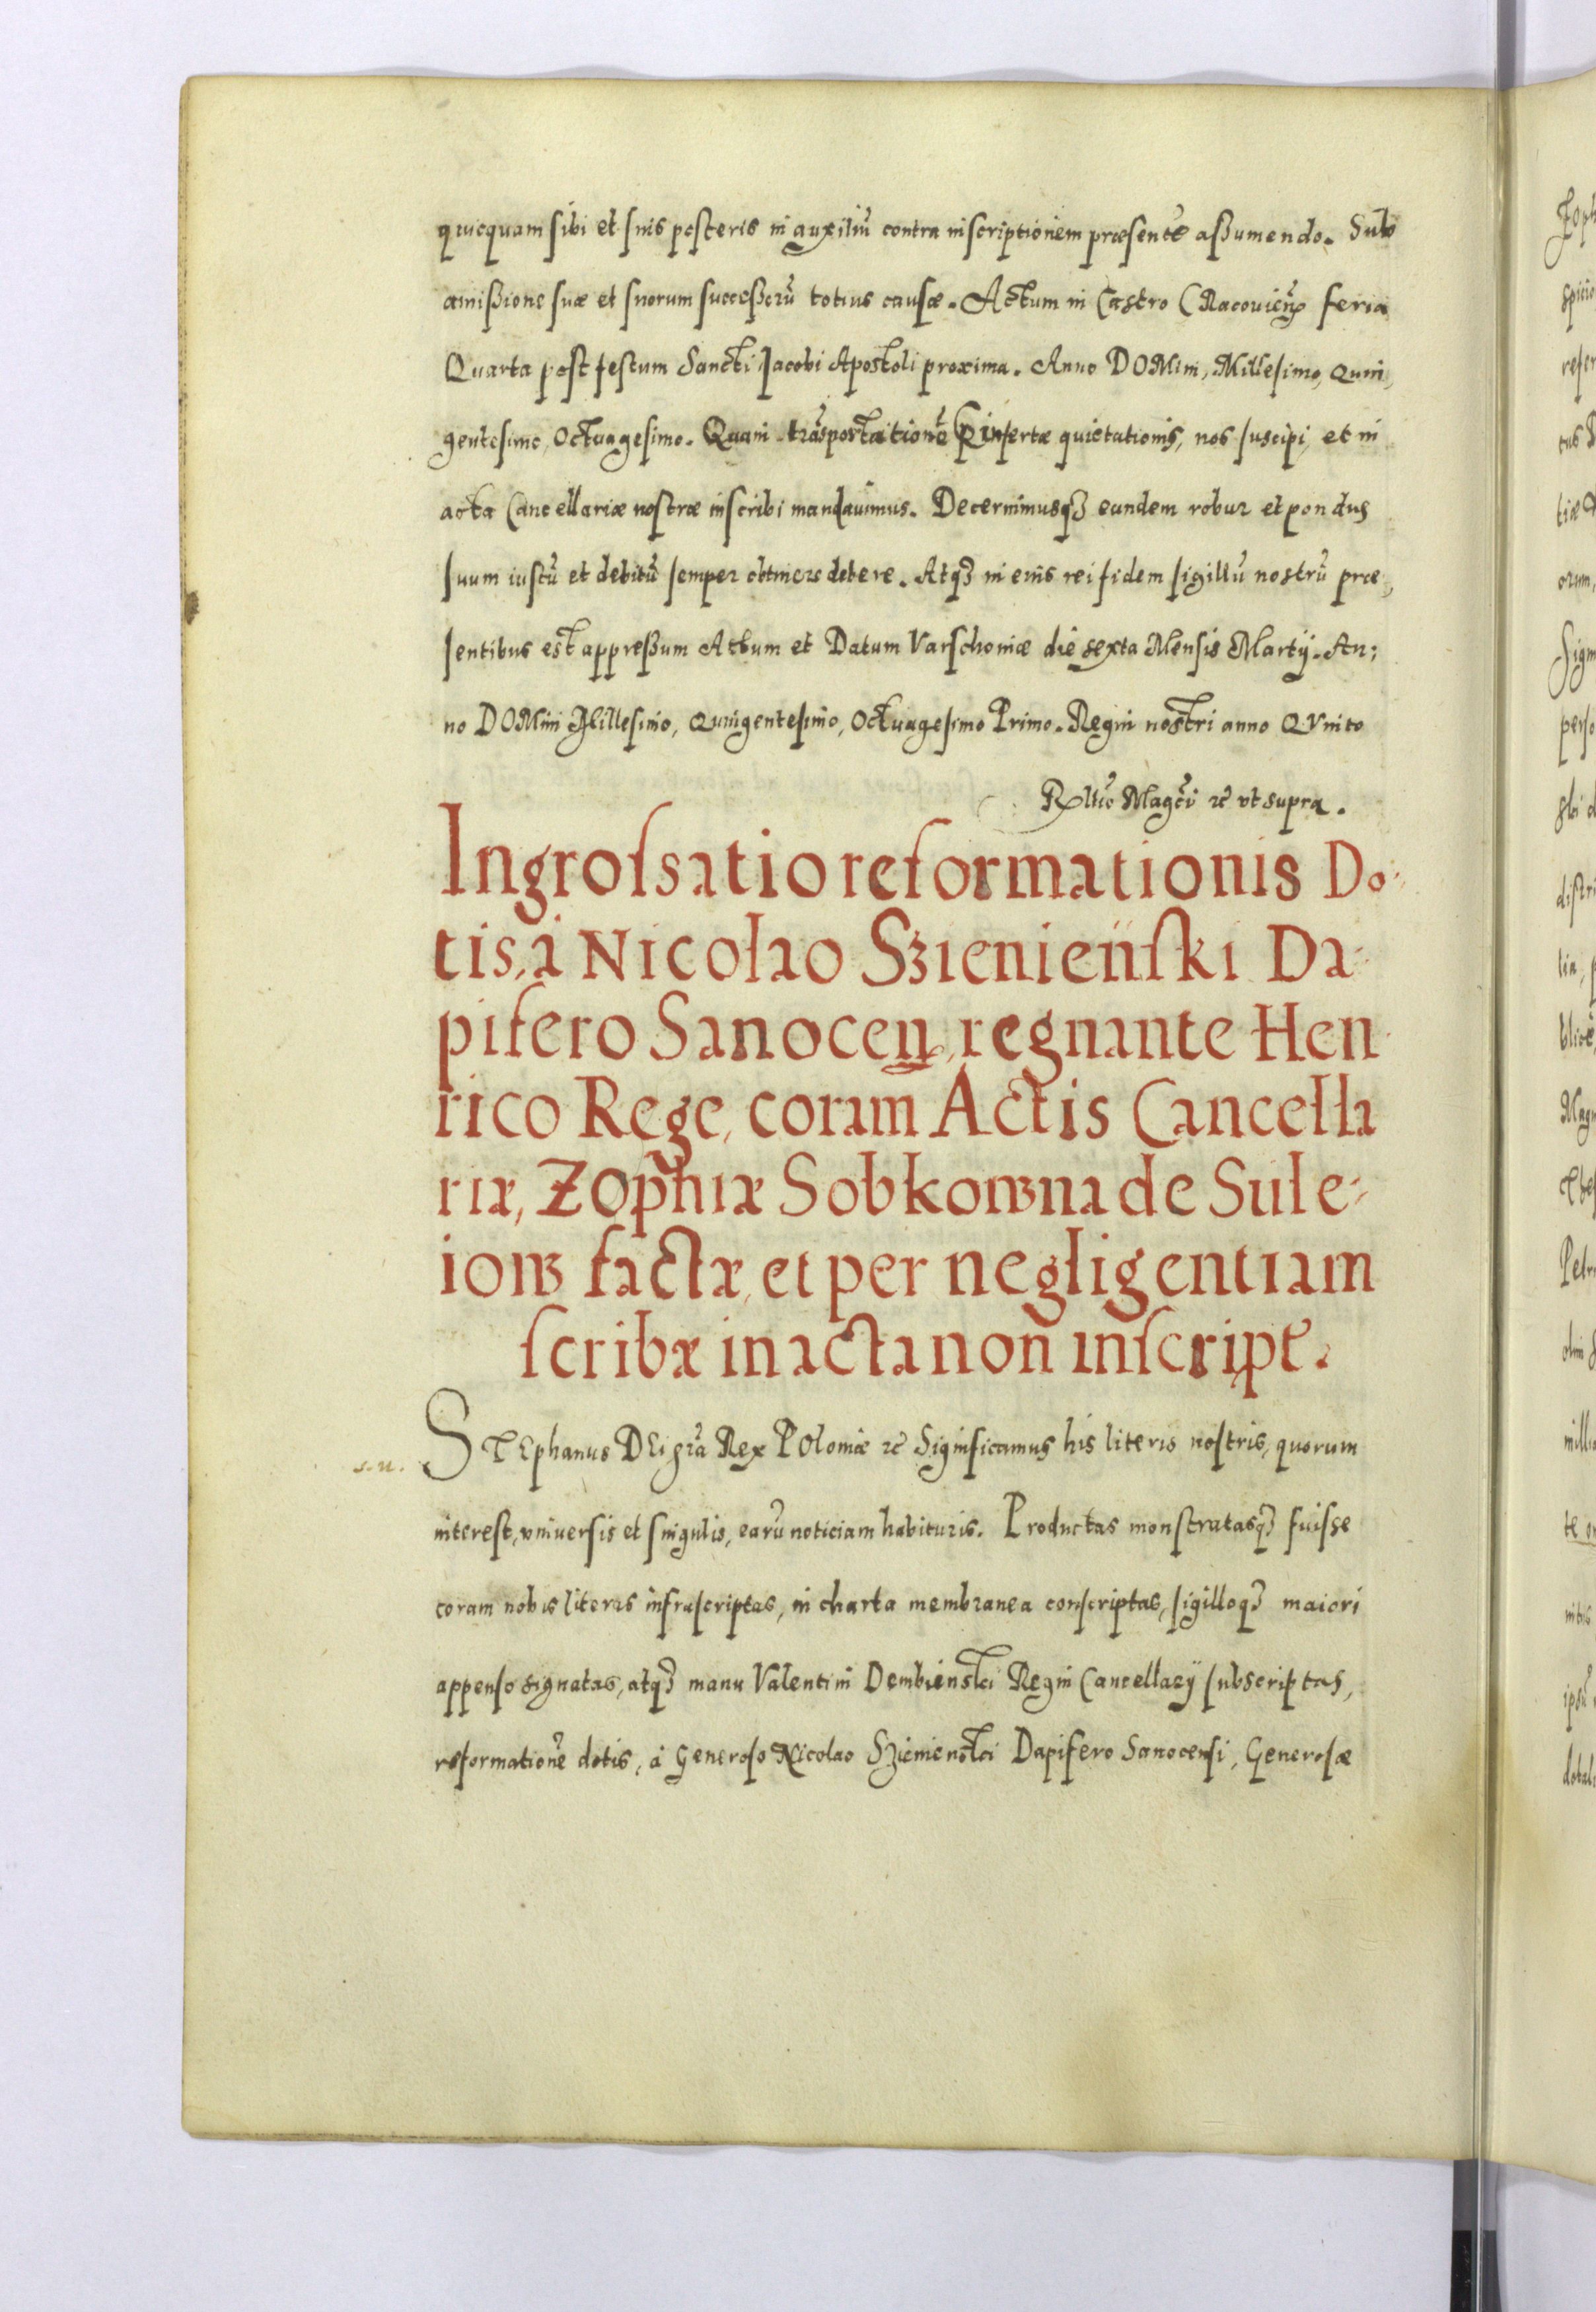 quicquam sibi et suis posteris in auxiliũ contra inscriptionem præsentẽ aßumendo. Sub
amißione suæ et suorum succeßorũ totius causæ. Actum in Castro Cracovieñ feria
Quarta post festum Sancti Jacobi Apostoli proxima. Anno DOMini, Millesimo, Quin,
gentesimo, Octuagesimo. Quam trãsportationẽ insertæ quietationis, nos suscipi, et in
acta Cancellariæ nostræ inscribi mandauimus. Decernimusqʒ eandem robur et pondus
suum iustũ et debitũ semper obtinere debere. Atqʒ in eius rei fidem sigillũ nostrũ præ,
sentibus est appreßum Actum et Datum Varschoniæ die sexta Mensis Martÿ. An:
no DOMini Millesimo, Quingentesimo, Octuagesimo Primo. Regni nostri anno QVinto
Rłtio Magci ꝛc vt supra.
Ingroſsatio reformationis Do-
tis, à Nicolao Sʒienieńſki Da-
pifero Sanoceñ, regnante Hen
rico Rege, coram Actis Cancella
riæ, Zophiæ Sobkowna de Sule-
iow factæ, et per negligentiam
ſcribæ in acta non inſcriptę.
s.u.
STEphanus DEi grã Rex POloniæ ꝛc Significamus his literis nostris, quorum
interest, vniuersis et singulis, earũ noticiam habituris. Productas monstratasqʒ fuisse
coram nobis literas infrascriptas, in charta membranea conscriptas, sigilloqʒ maiori
appenso signatas, atqʒ manu Valentini Dembienski Regni Cancellarÿ subscriptas,
reformationẽ dotis, à Generoso Nicolao Sʒienienski Dapifero Sanocensi, Generosæ